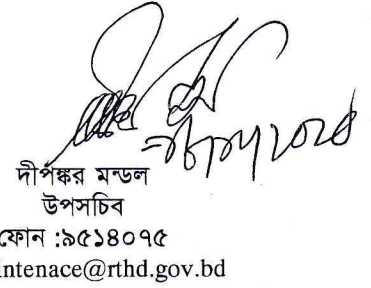 দীপঙ্কর মন্ডল
উপসচিব
ফোন :৯৫১৪০৭৫
intenace@rthd.gov.bd